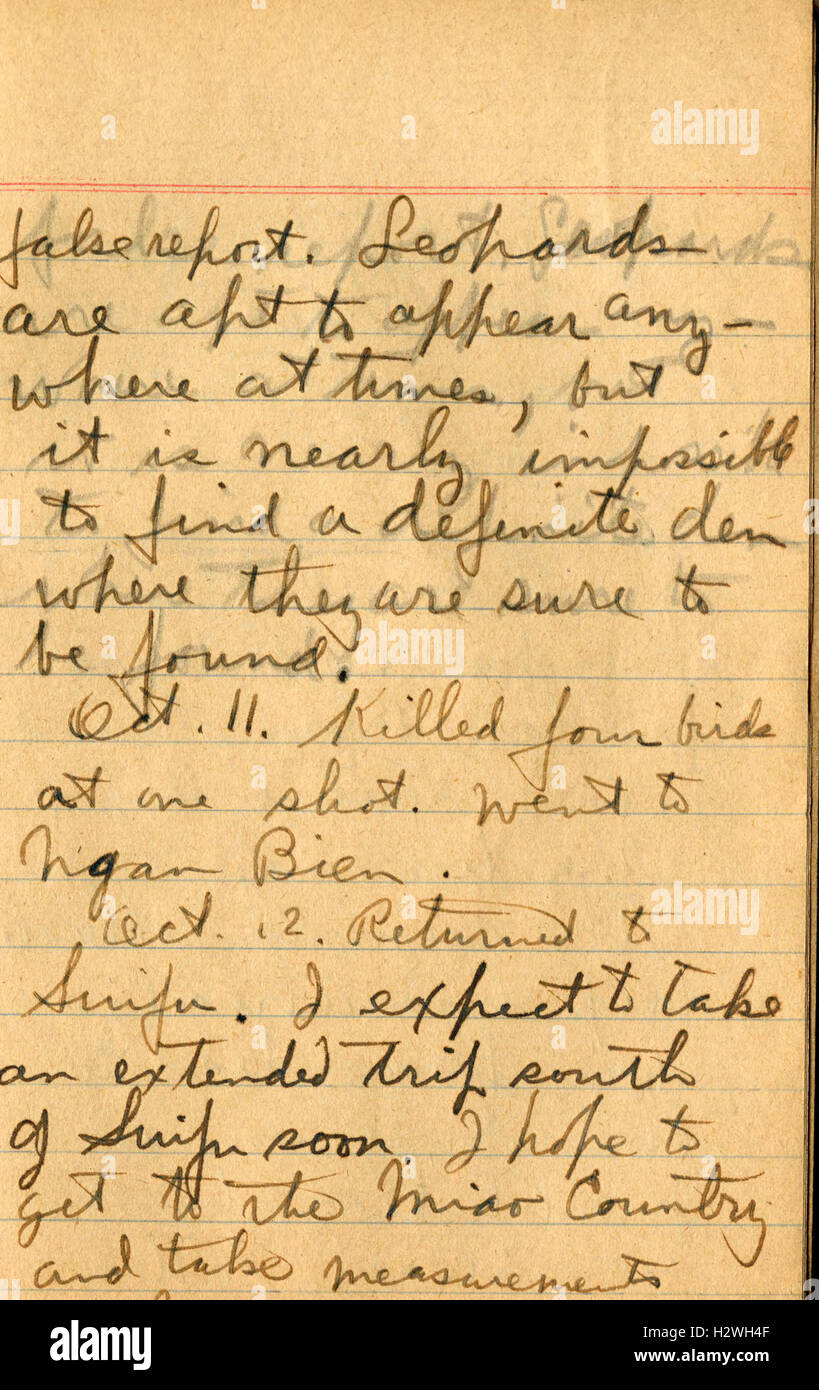 false report. Leopards
are apt to appear any-
where at times, but
it is nearly impossible
to find a definite den
where they are sure to
be found.
Oct. 11. Killed four birds
at one shot. Went to
Ngan Bien.
Oct. 12. Returned to
Suifu. I expect to take
an extended trip south
of Suifu soon. I hope to
get to the Miao Country
and take measurements
alamy
a
a
alamy
a
alamy
alamy
Image ID: H2WH4F
www.alamy.com